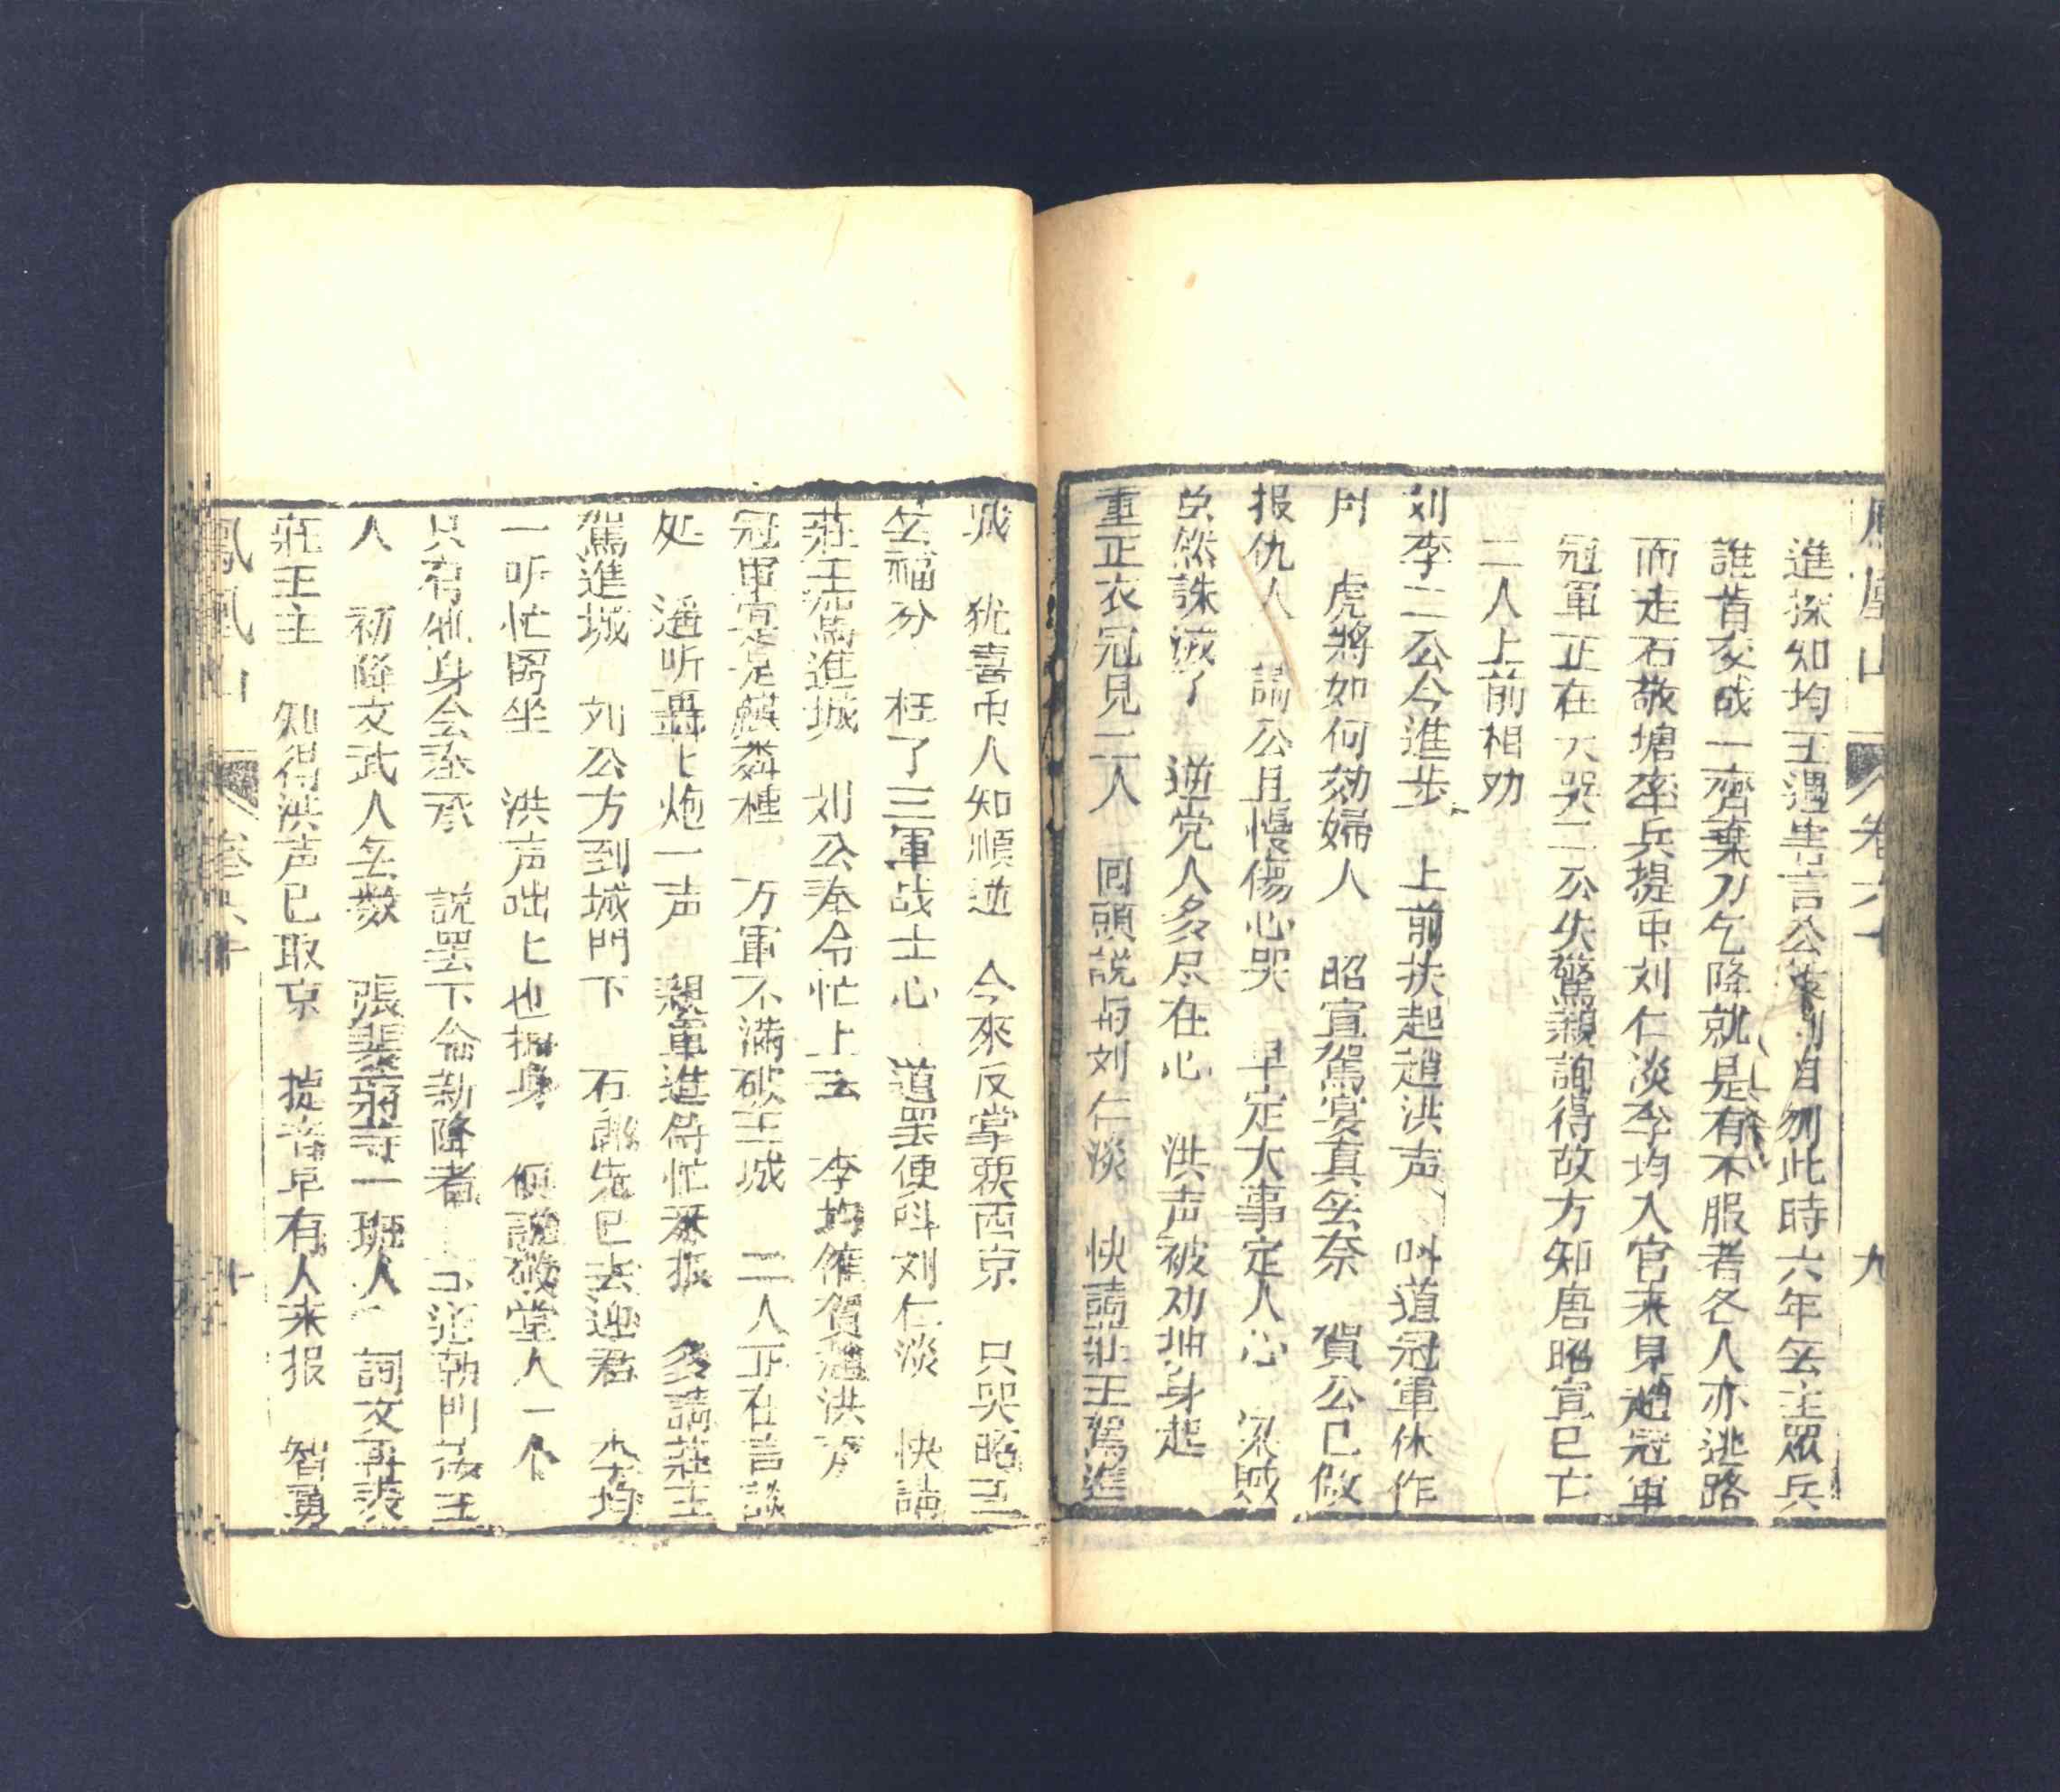 鳳凰山 卷六十 九
進探知均王遇害言公策刎自刎此時六年兦主眾兵
誰肯交战一齊棄刀乞降就是有不服者各人亦逃路
而走石敬塘率兵提中刘仁淡李均入宫来見趙冠軍
冠軍正在大哭二公失驚親詢得故方知唐昭宣已亡
二人上前相劝
刘李二公今進步 上前扶起趙洪声 叫道冠軍休作
虎將如何効婦人 昭宣駕宴真兦奈 賀公已做
报仇人 請公且慢傷心哭 早定大事定人心 賊
然誅滅了 逆党人多尽在心 洪声被劝抽身起
重正衣冠見二人 回頭説与刘仁淡 快請莊王駕進
城 犹喜中人知順逆 今來反掌获西京 只哭昭王
兦福分 枉了三軍战士心 道罢便叫刘仁淡 快請
莊王駕進城 刘公奉令忙上去 李均催賀趙洪声
冠軍寔是麒麟種 万軍不满破王城 二人正在言談
处 遥听轟上炮一声 親軍進前忙来振 多請莊王
駕進城 刘公方到城門下 石郎先已去迎君 李均
一听忙留坐 洪声咄上也抽身 便説敬堂人一个
只有他身会奉承 説罢下令新降者 迎朝門 王
人 初降文武人兦数 張裴蒋等一班人 詞文再表
莊王主 知得洪声已取京 捷音早有人来报 智勇
鳳凰山 卷六十 十